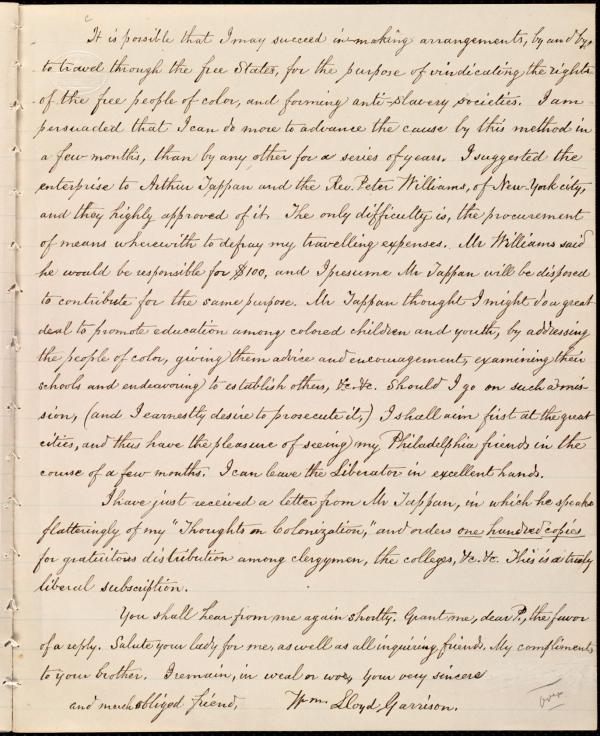 It is possible that I may succeed in making arrangements, by and by,
to travel through the free States, for the purpose of vindicating the rights
of the free people of color, and forming anti-slavery societies. I am
persuaded that I can do more to advance the cause by this method in
a few months, than by any other for a series of years. I suggested the
enterprise to Arthur Tappan and the Rev. Peter Williams, of New-York city,
and they highly approved of it. The only difficulty is, the procurement
of means wherewith to defray my travelling expenses. Mr Williams said
he would be responsible for $100, and I presume Mr Tappan will be disposed
to contribute for the same purpose. Mr Tappan thought I might do a great
deal to promote education among colored children and youth, by addressing
the people of color, giving them advice and encouragement, examining their
schools and endeavoring to establish others, &c. &c. Should I go on such a mis-
sion, (and I earnestly desire to prosecute it,) I shall aim first at the great
cities, and thus have the pleasure of seeing my Philadelphia friends in the
course of a few months. I can leave the Liberator in excellent hands.
I have just received a letter from Mr Tappan, in which he speaks
flatteringly of my "Thoughts on Colonization," and orders one hundred copies
for gratuitous distribution among clergymen, the colleges, &c. &c. This is a truly
liberal subscription.
You shall hear from me again shortly. Grant me, dear P., the favor
of a reply. Salute your lady for me, as well as all inquiring friends. My compliments
to your brother. I remain, in weal or woe, your very sincere
and much obliged friend, Wm. Lloyd Garrison.
over